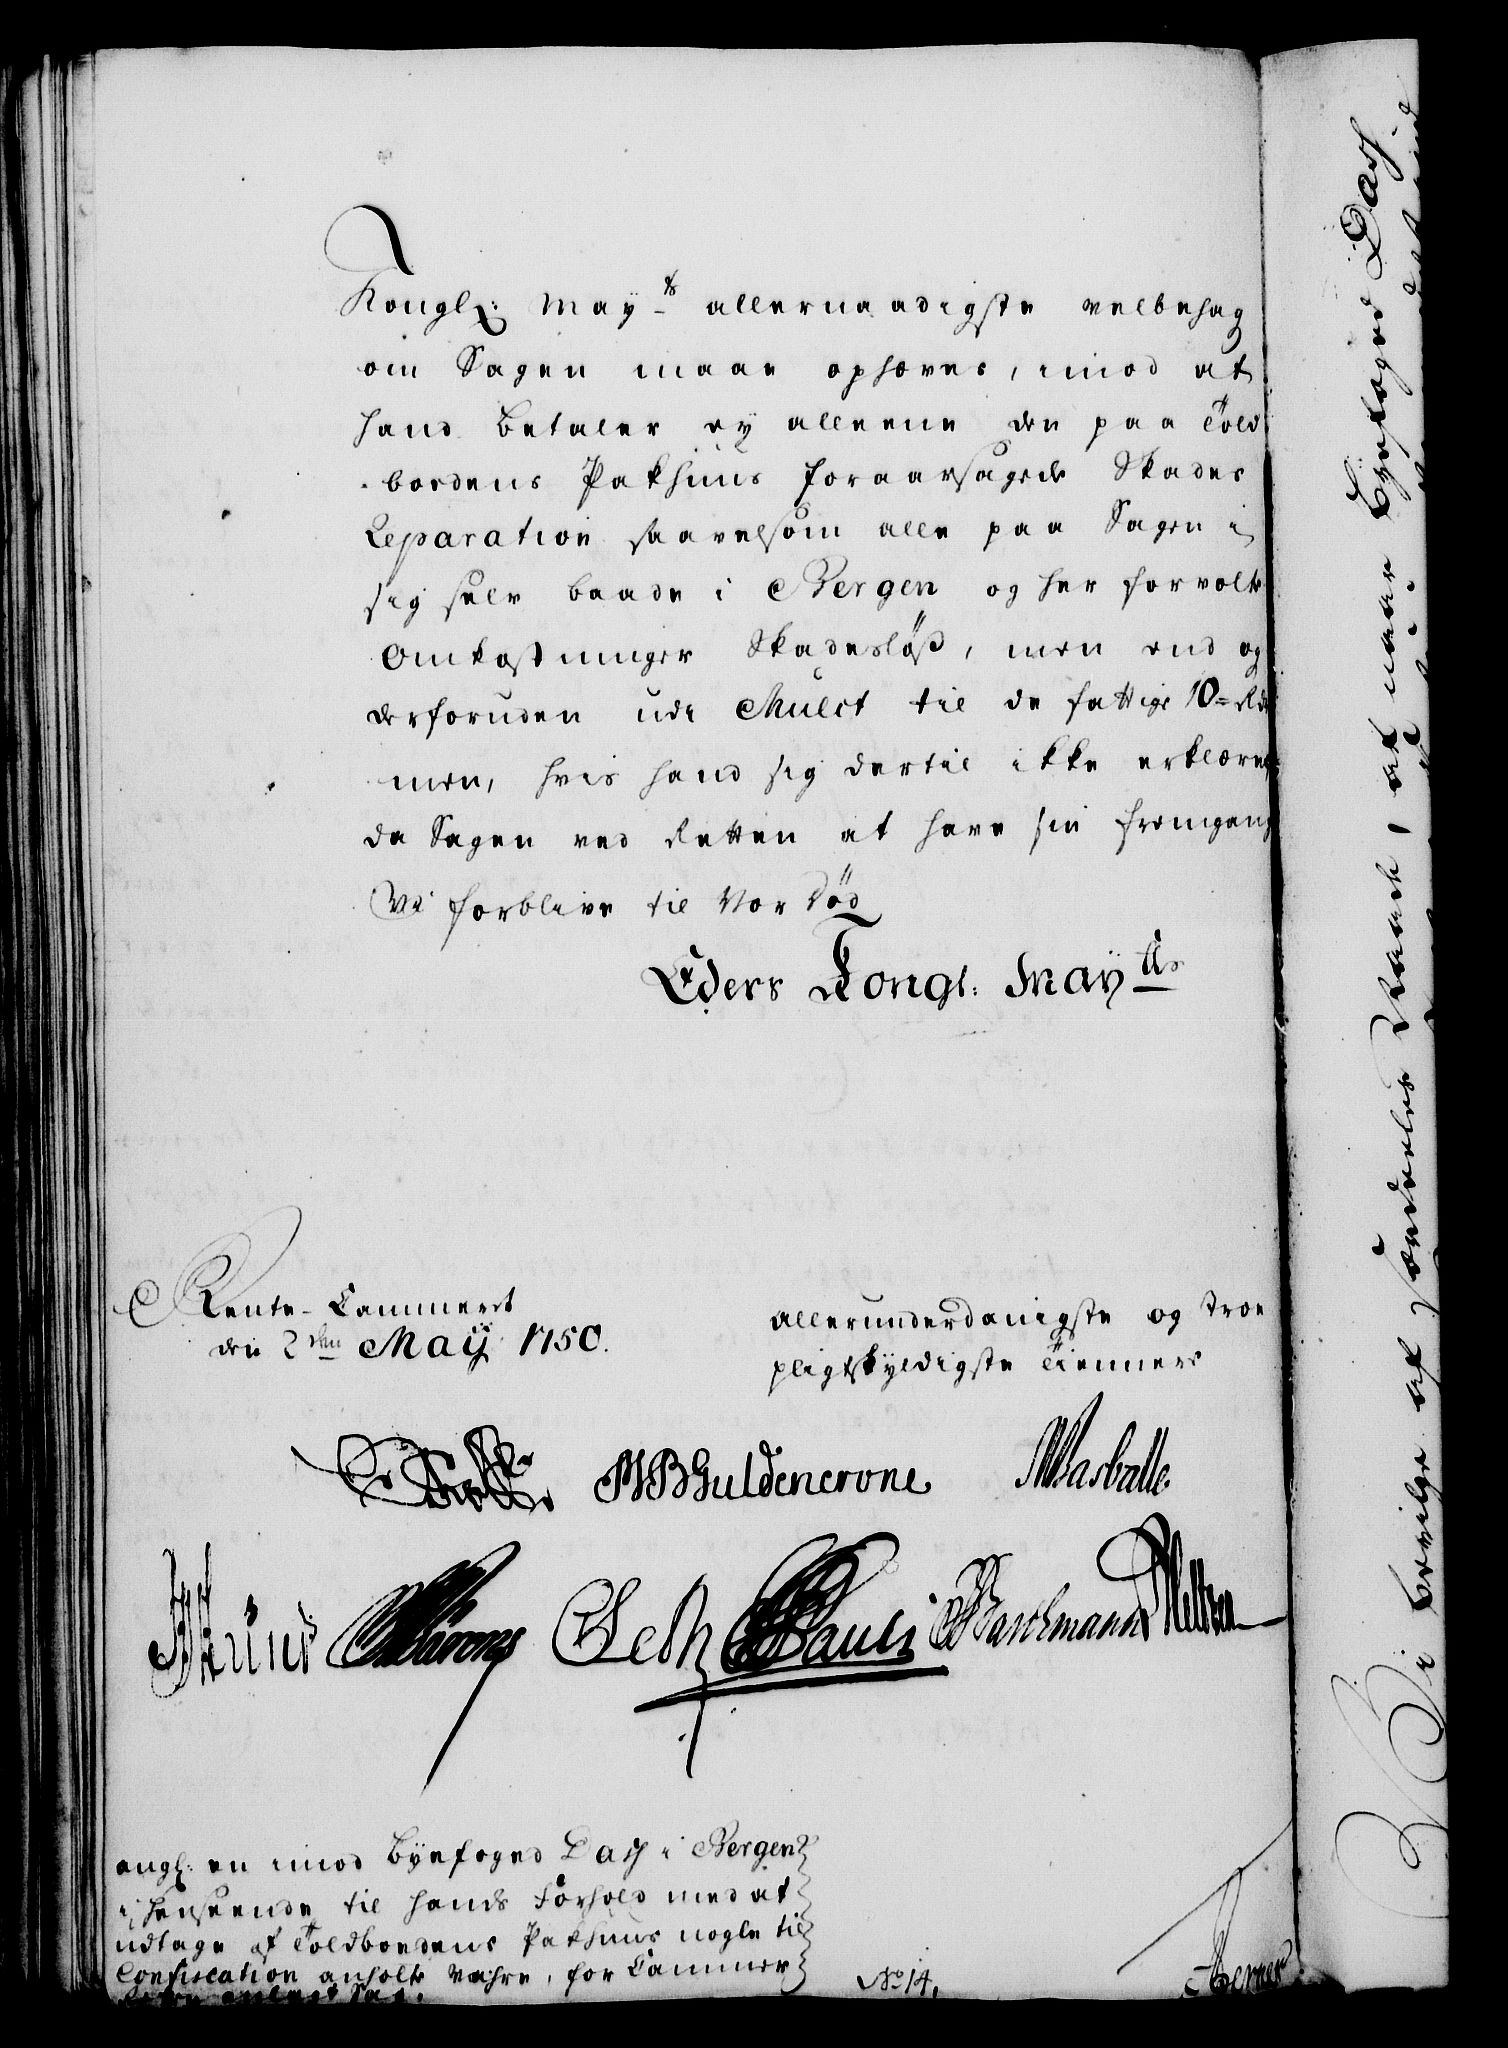 Kongl: May.ts allernaadigste velbehag
om Sagen maae ophæves, imod at
hand betaler ey alleene den paa Told
bodens Pakhuus foraarsagede Skades
Reparation saavelsom alle paa Sagen i
sig selv baade i Bergen og her forvolte
Omkostninger Skadesløs, men end og
derforuden udi Mulct til de fattige 10 Rd
men, hvis hand sig dertil ikke erklærer
da Sagen ved Retten at have sin fremgang
Vi forblive til Vor Død
Eders Kongl: May.tts
Rente-Cammeret
den 2den Maij 1750.
allerunderdanigste og troe
pligtskyldigste tiennere
Guldencrone
Wasballe
Pauli
angl: en imod Byefoged Dass i Bergen
i henseende til hands Forhold med at
udtage af Toldboedens Pakhuus nogle til
Confiscation anholte Vahre, for Cammer
Retten anlagt Sag.
No 14.
Vi bevilge af særdeles Naade, at naar Byefoged Dass